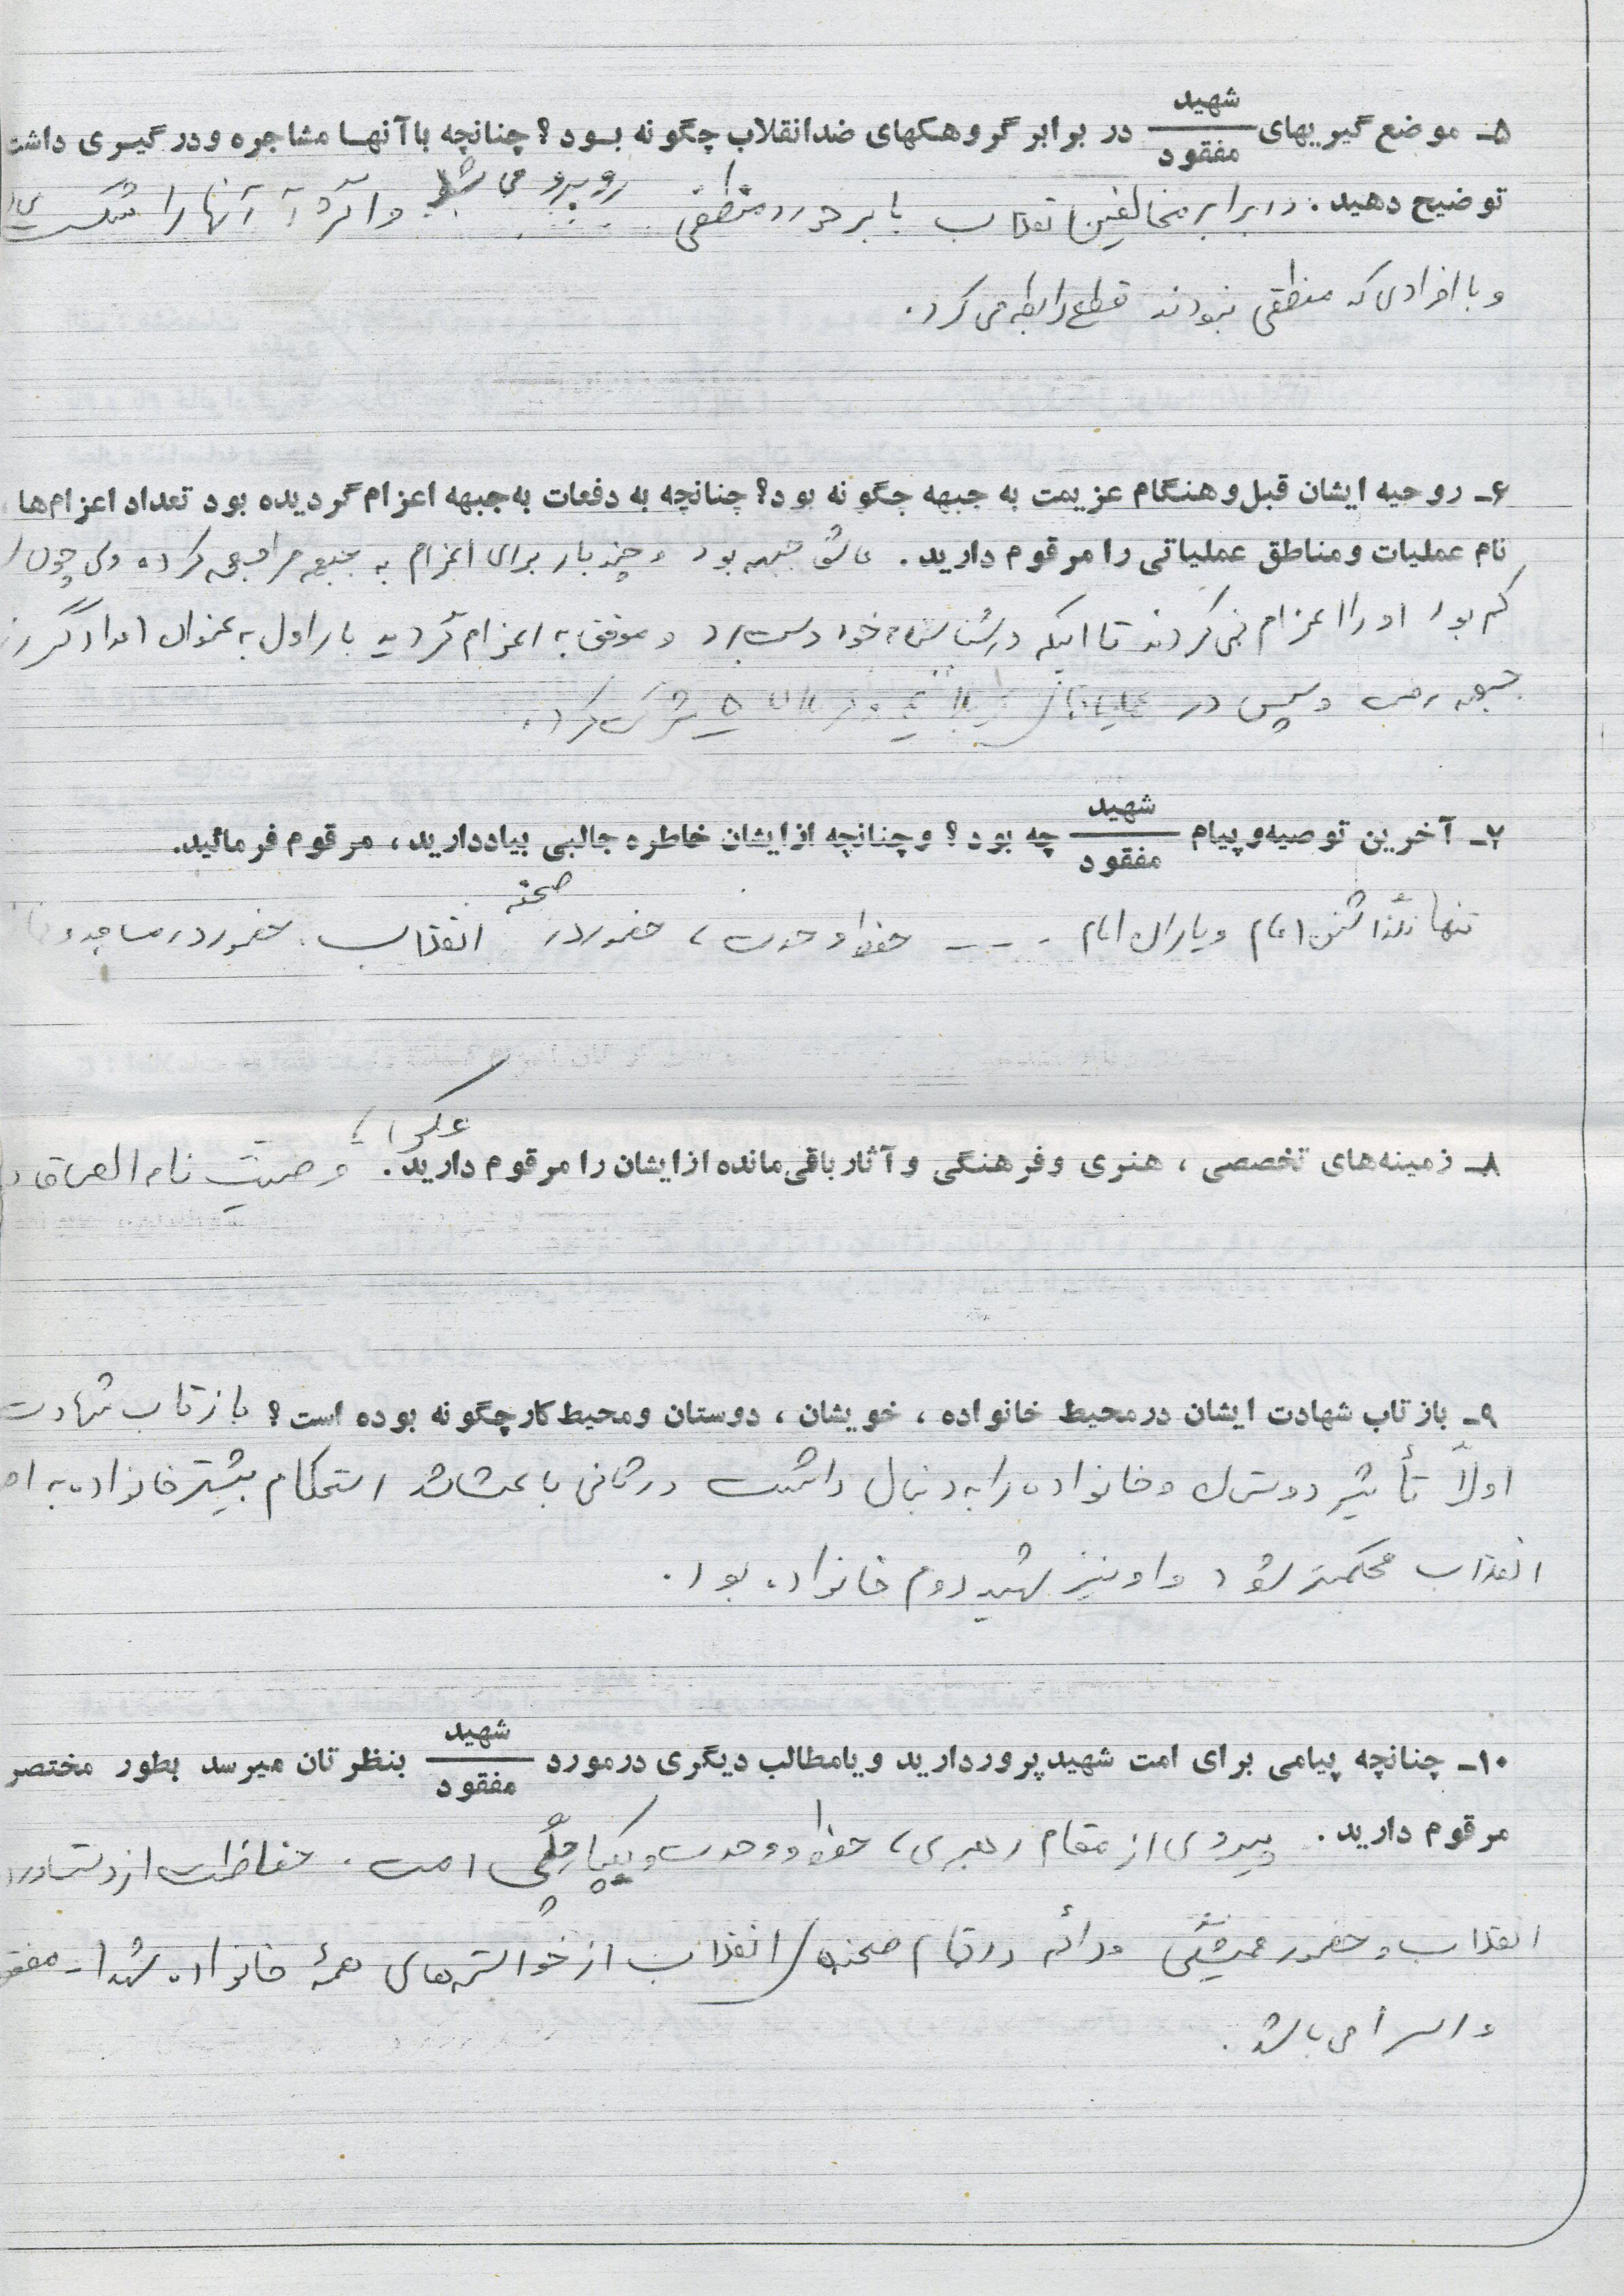 ۵ـ موضع گیریهای شهید / مفقود در برابر گروهکهای ضدانقلاب چگونه بود؟ چنانچه باآنها مشاجره ودرگیری داشت
توضیح دهید. در برابر مخالفین انقلاب با برخورد منطقی روبرو می شد و اکثراً آنها را شکست
و با افرادی که منطقی نبودند قطع رابطه می کرد.
۶ـ روحیه ایشان قبل وهنگام عزیمت به جبهه چگونه بود؟ چنانچه به دفعات به جبهه اعزام گردیده بود تعداد اعزام‌ها،
نام عملیات ومناطق عملیاتی را مرقوم دارید. عاشق جبهه بود و چند بار برای اعزام به جبهه مراجعه کرده ولی چون
کم بود او را اعزام نمی کردند تا اینکه در شناسنامه خود دست برد و موفق به اعزام گردید بار اول به عنوان امدادگر
جبهه رفت و سپس در عملیاتهای کربلا ۴ و کربلا ۵ شرکت کرد.
۷ـ آخرین توصیه‌وپیام شهید / مفقود چه بود؟ وچنانچه ازایشان خاطره جالبی بیاددارید، مرقوم فرمائید.
تنها نگذاشتن امام و یاران امام - - - - حفظ وحدت، حضور در صحنه انقلاب. حضور در مساجد و
۸ـ زمینه‌های تخصصی، هنری وفرهنگی وآثارباقی‌مانده ازایشان را مرقوم دارید. عکسها، وصیت نامه
۹ـ بازتاب شهادت ایشان درمحیط خانواده، خویشان، دوستان ومحیط کارچگونه بوده است؟ بازتاب شهادت
اولاً تأثیر دوستان و خانواده را به دنبال داشت در ثانی باعث شد استحکام بیشتر خانواده به
انقلاب محکمتر شود و او نیز شهید دوم خانواده بود.
۱۰ـ چنانچه پیامی برای امت شهیدپرور دارید ویامطالب دیگری درمورد شهید / مفقود بنظرتان میرسد بطور مختصر
مرقوم دارید. پیروی از مقام رهبری، حفظ وحدت و یکپارچگی امت. حفاظت از
انقلاب و حضور همیشگی در تمام صحنه های انقلاب از خواسته های همهٔ خانواده شهدا ـ
و اسرا می باشد.